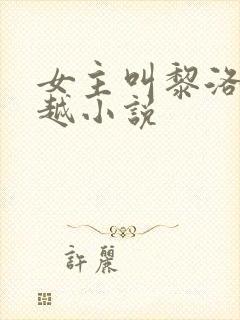 女主叫黎洛
越小説
許麗